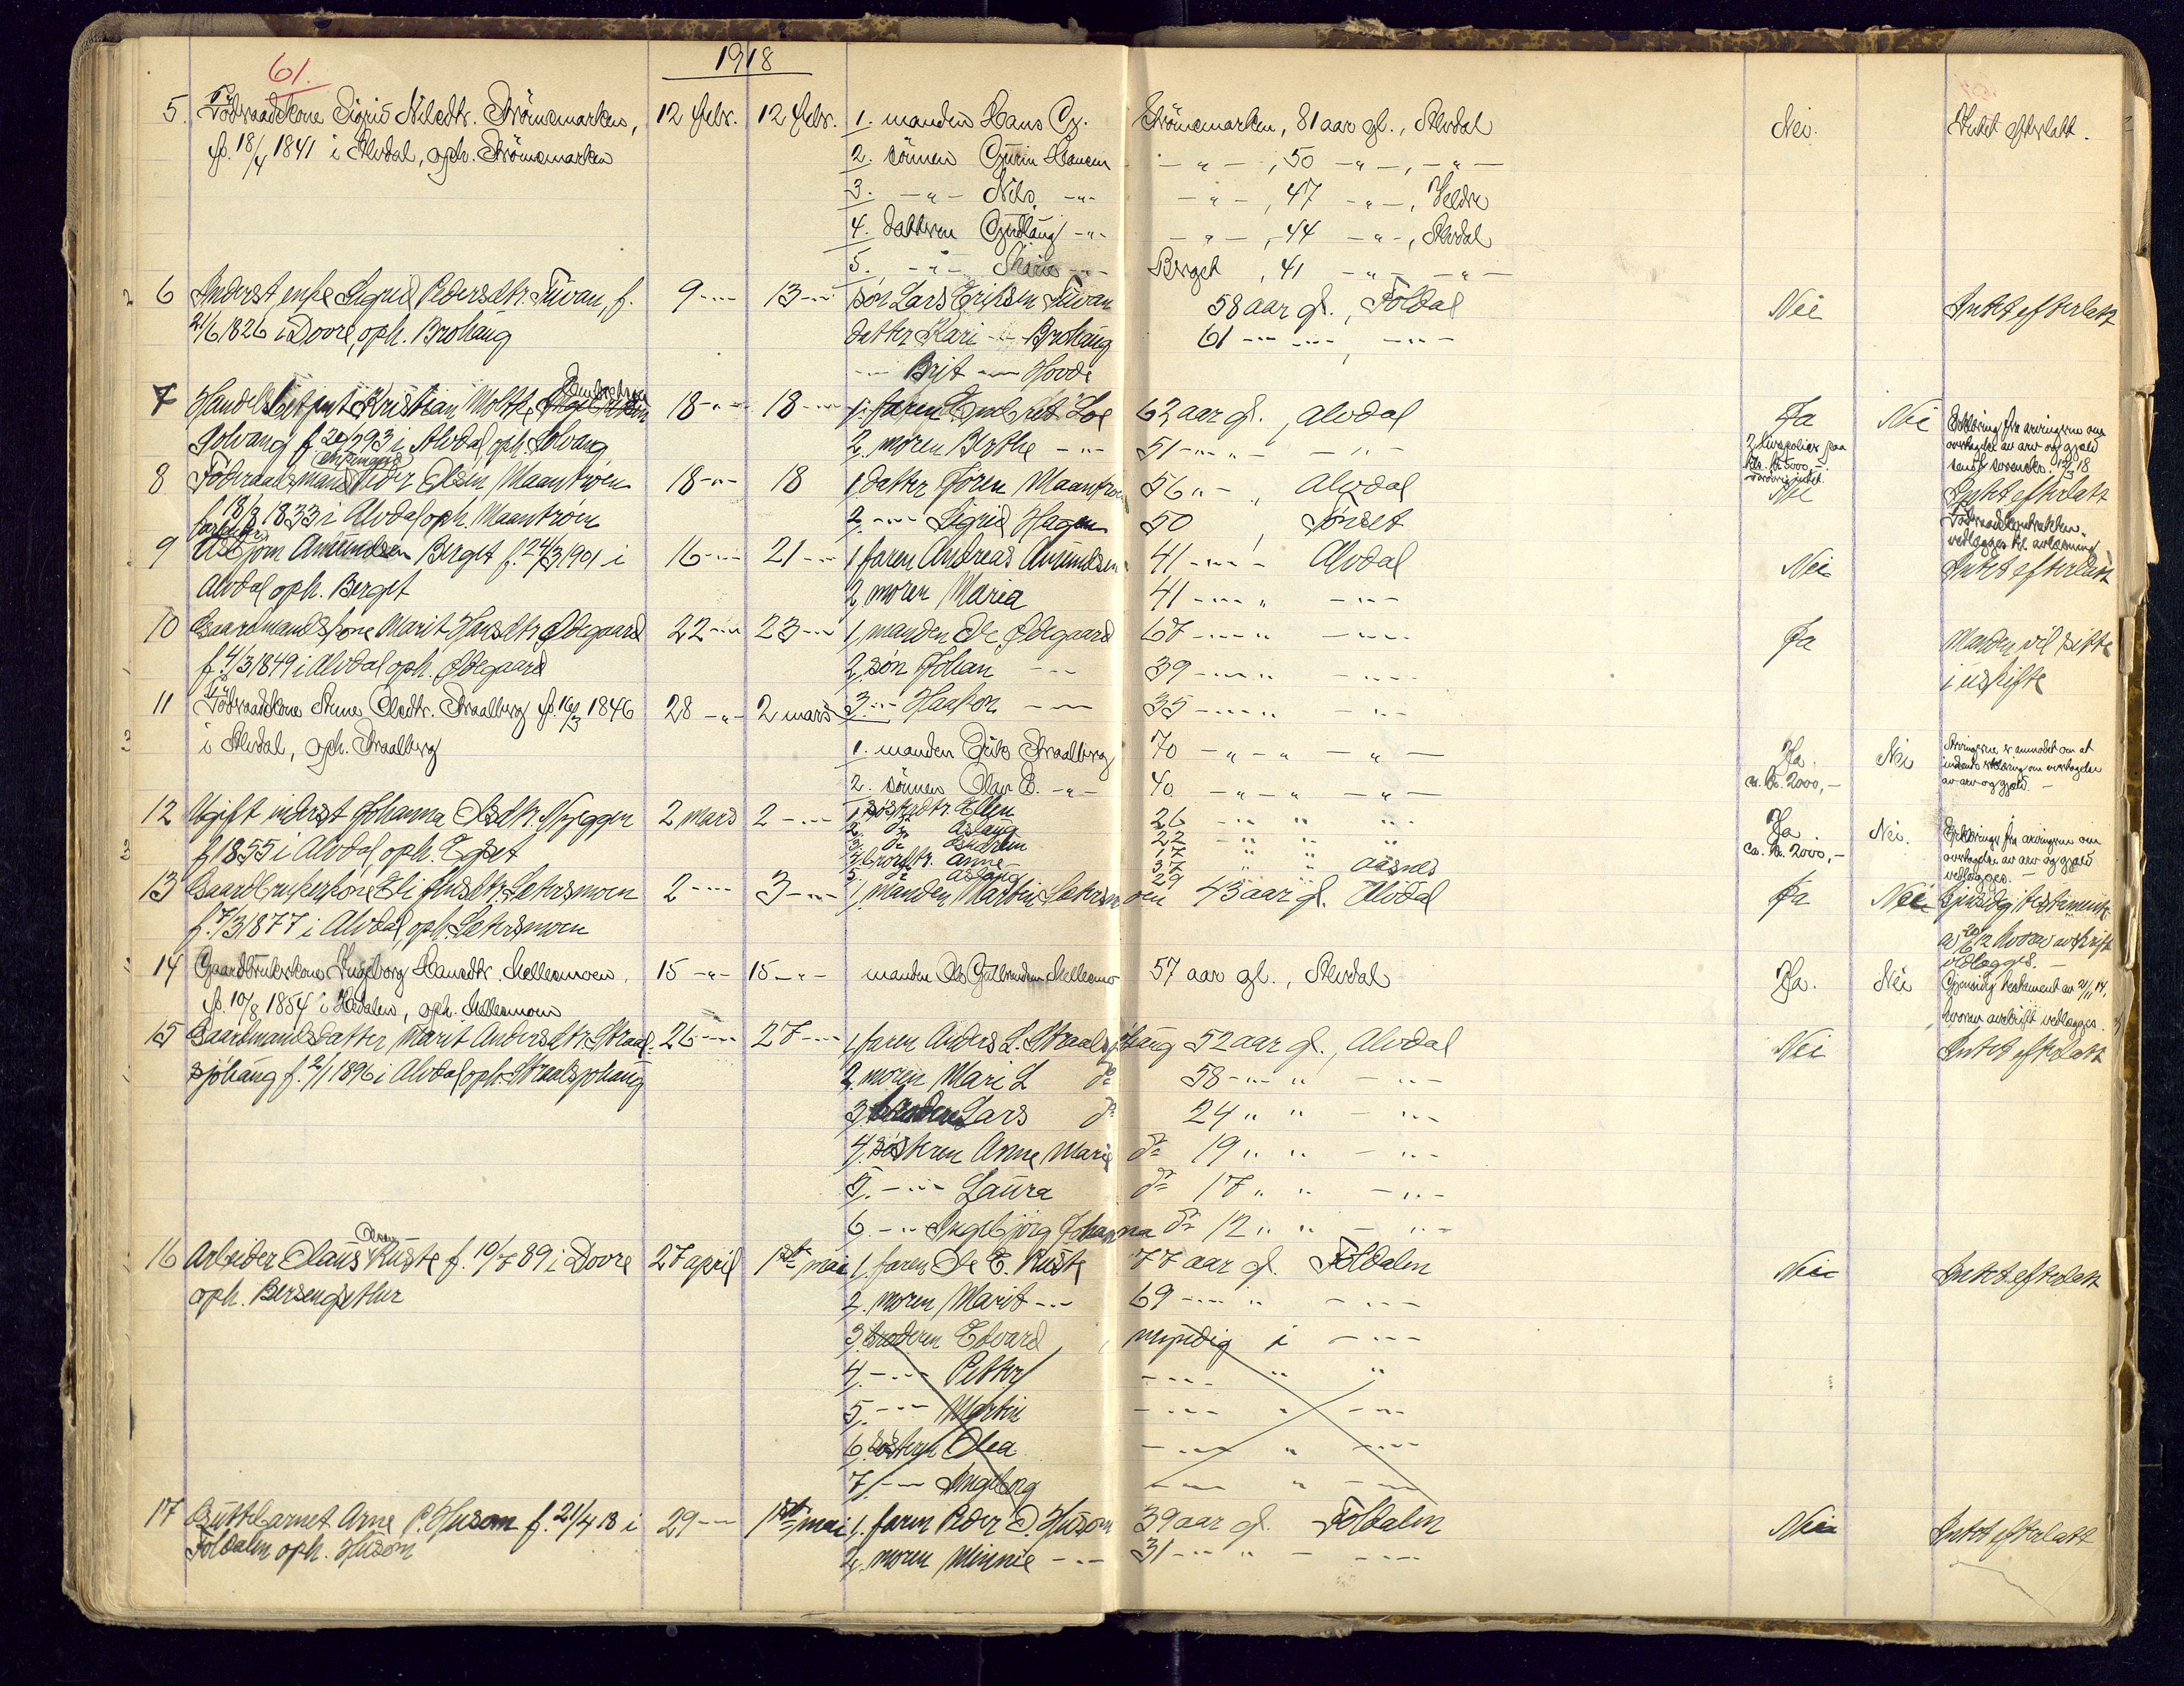 61.
1918
5. Føderaadskone Sigrid Nilsdtr. Strömsmarken, 12 febr. 12 febr. 1. manden Hans Strömsmarken, 81 aar gl., Alvdal Nei. Intet efterlatt.
f. 18/4 1841 i Alvdal, oph. Strömsmarken 2. sönnen Hansen -"- , 50 -"-, -"-
3. -"- Nils -"- -"- , 47 -"-, Veldre
4. datteren Gudlaug -"- -"- , 44 -"-, Alvdal
5. -"- Marie -"- Berget , 41 -"- -"-
6 Inderst enke Sigrid Pedersdtr. Fuvan, f. 9 -"- 13 -"- søn Lars Eriksen Fuvan 58 aar gl., Foldal Nei Intet efterlatt
21/6 1826 i Dovre, oph. Brohaug datter Kari -"- Brohaug 61 -"- -"- , -"-
-"- Brit -"- Hovde
7 Handelsbetjent Kristian Moltke Embretsen 18 -"- 18 -"- 1. faren Embret Loe 62 aar gl., Alvdal Ja Nei Erklæring fra arvingerne om
Solvang f. 20/7 93 i Alvdal oph. Solvang 2. moren Berthe -"- 51 -"- "- -"- 2 livspolicer paa overtagelse av arv og gjæld
kr. 5000,-. 18
8 Føderaadsmand Peder Olsen Maantrøen 18 -"- 18 1. datter Jøren Maantrøen 56 "- , Alvdal Nei Intet efterlatt
f. 18/8 1833 i Alvdal oph. Maantrøen 2. -"- Sigrid Hagen 50 , Tønset Føderaadskontrakten
vedlægges til avlæsning
arbeider
9 Asbjørn Amundsen Berget f. 24/3 1901 i 16 -"- 21 -"- 1. faren Andreas Amundsen 41 -"- - Alvdal Nei Intet efterlatt
Alvdal oph. Berget 2. moren Maria 41 -"- " -"-
10 Gaardmandskone Marit Hansdtr Ødegaard 22 -"- 23 -"- 1. manden Ole Ødegaard 67 -"- " -"- Ja Manden vil sitte
f. 4/3 1849 i Alvdal oph. Ødegaard 2. søn Johan -"- 39 -"- " -"- i uskifte
11 Føderaadskone Anne Olsdtr. Straalberg f. 16/3 1846 28 -"- 2 mars 3. -"- Haakon -"- 35 -"- " -"-
i Alvdal, oph. Straalberg 1. manden Erik Straalberg 70 -"- " " - Ja. Nei Arvingerne er anmodet om at
indsende erklæring om overtagelse
2. sönnen Olav E. -"- 40 -"- " -"- ca. kr. 2000,- av arv og gjæld. -
12 Ugift inderst Johanna Olsdtr. Nyeggen 2 mars 2 -"- 1. søsterdtr. Ellen 26 -"- " " Ja. Nei. Erklæringer fra arvingerne om
f. 1855 i Alvdal oph. Eggset 2. do Aslaug 22 -"- " " ca. kr. 2000,- overtagelse av arv og gjæld
3. do Gudrun 17 " " vedlægges. -
4. brordtr. Anne 37 " " Aasnes
5. do Aslaug 29
13 Gaardbrukerkone Eli Jensdtr. Sætersmoen 2 -"- 3 -"- 1. manden Martin Sætersmoen 43 aar gl. Alvdal Ja Nei Gjensidig testamente
f. 7/3 1877 i Alvdal, oph. Sætersmoen av 20/6 12 hvorav avskrift
vedlægges. -
14 Gaardbrukerkone Ingeborg Hansdtr. Mellesmoen, 15 -"- 15 -"- manden Ole Gulbrandsen Mellesmo 57 aar gl., Alvdal Ja. Nei Gjensidig testament av 21/11 14,
f. 10/8 1854 i Hedalen, oph. Mellesmoen hvorav avskrift vedlægges.
15 Gaardmandsdatter Marit Andersdtr. Straal- 26 -"- 27 -"- 1. faren Anders L. Straalsjøhaug 52 aar gl., Alvdal Nei Intet efterlatt
sjöhaug f. 2/1 1896 i Alvdal oph. Straalsjohaug 2. moren Mari L do 58 -"- " - "-
3. broderen Lars do 24 " " - "-
4. søsteren Anne Marie do 19 " " - "-
5. -"- Laura do 17 " " - "-
6. -"- Ingebjörg Johanna do 12 " " - "-
16 Arbeider Olaus Olsen Ruste f. 10/7 89 i Dovre 27 april 1ste mai 1. faren Ole E. Ruste 77 aar gl. Foldalen Nei Intet efterlatt
oph. Bersengsethur 2. moren Marit -"- 69 -"- " -"-
3. broderen Edvard , myndig i -"-
4. -"- Petter -"- " "
5. -"- Martin -"- " -"-
6. søstern Olea -"- " -"-
7. -"- Ingeborg -"- " -"-
17 Guttebarnet Arne P. Husom f. 21/4 18 i 29 -"- 1ste mai 1. faren Peder O. Husom 39 aar gl. Foldalen Nei Intet efterlatt
Foldalen oph. Husom 2. moren Minnie -"- 31 -"- " - -"-